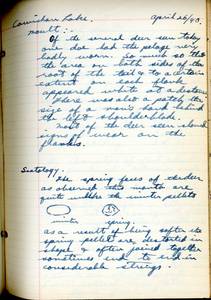 Cowichan Lake. April 26/40.
moult :-
Of the several deer seen today
one doe had the pelage very
badly worn. So much so that
the area on both sides of the
root of the tail & to a certain
extent on each flank
appeared white at a distance
There was also a patch the
size of a man's hand behind
the left shoulderblade.
Most of the deer seen show
signs of wear on the
flanks.
Scatology.
The spring feces of deer
as observed this month are
quite unlike the winter pellets
winter spring.
as a result of being softer the
spring pellets are distorted in
shape & often joined together
sometimes end to end in
considerable strings.